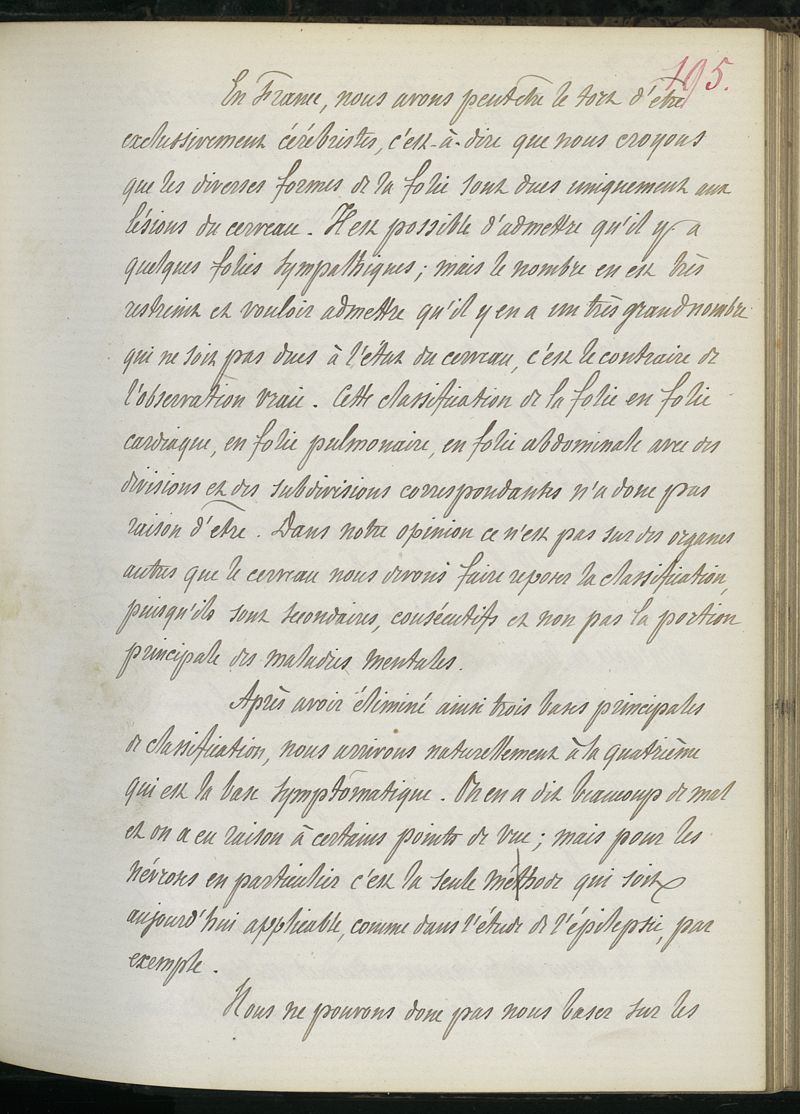 195.
En France, nous avons peut être le tort d'être
exclusivement cérébristes, c'est-à-dire que nous croyons
que les diverses formes de la folie sont dues uniquement aux
lésions du cerveau. Il est possible d'admettre qu'il y a
quelques folies sympathiques; mais le nombre en est très
restreint et vouloir admettre qu'il y en a un très grand nombre
qui ne soit pas dues à l'état du cerveau, c'est le contraire de
l'observation vraie. Cette classification de la folie en folie
cardiaque, en folie pulmonaire, en folie abdominale avec des
divisions et des subdivisions correspondantes n'a donc pas
raison d'être. Dans notre opinion ce n'est pas sur des organes
autres que le cerveau nous devons faire reposer la classification,
puisqu'ils sont secondaires, consécutifs et non pas la portion
principale des maladies mentales.
Après avoir éliminé ainsi trois bases principales
de classification, nous arrivons naturellement à la quatrième
qui est la base symptômatique. On en a dit beaucoup de mal
et on a eu raison à certains points de vue; mais pour les
névroses en particulier c'est la seule méthode qui soit
aujourd'hui applicable, comme dans l'étude de l'épilepsie, par
exemple.
Nous ne pouvons donc pas nous baser sur les